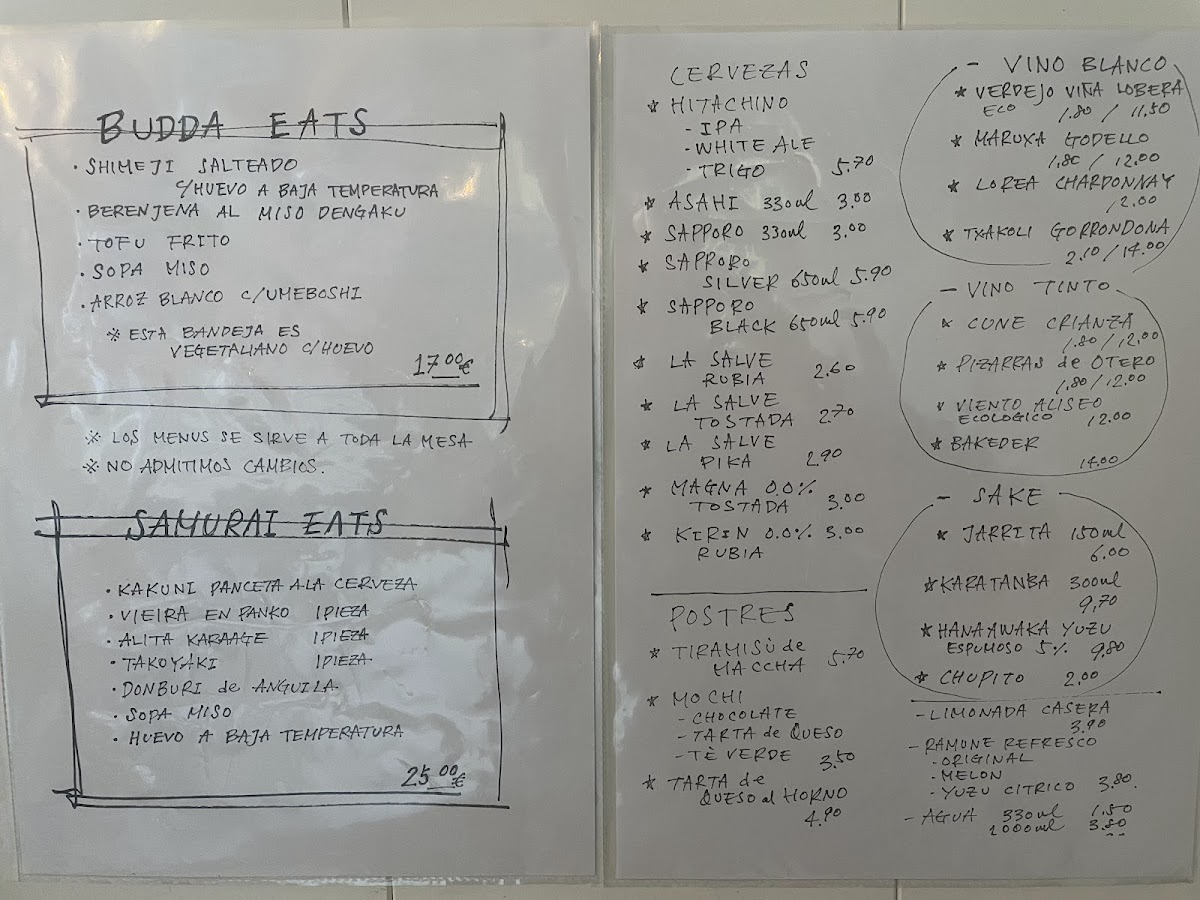 BUDDA EATS
· SHIMEJI SALTEADO
C/HUEVO A BAJA TEMPERATURA
· BERENJENA AL MISO DENGAKU
· TOFU FRITO
· SOPA MISO
· ARROZ BLANCO C/UMEBOSHI
※ ESTA BANDEJA ES
VEGETALIANO C/HUEVO
17.00€
※ LOS MENUS SE SIRVE A TODA LA MESA
※ NO ADMITIMOS CAMBIOS.
SAMURAI EATS
· KAKUNI PANCETA A LA CERVEZA
· VIEIRA EN PANKO 1 PIEZA
· ALITA KARAAGE 1 PIEZA
· TAKOYAKI 1 PIEZA
· DONBURI de ANGUILA
· SOPA MISO
· HUEVO A BAJA TEMPERATURA
25.00€
CERVEZAS
* HITACHINO
- IPA
- WHITE ALE
- TRIGO 5.70
* ASAHI 330ml 3.00
* SAPPORO 330ml 3.00
* SAPPORO
SILVER 650ml 5.90
* SAPPORO
BLACK 650ml 5.90
* LA SALVE
RUBIA 2.60
* LA SALVE
TOSTADA 2.70
* LA SALVE
PIKA 2.90
* MAGNA 0.0%
TOSTADA 3.00
* KIRIN 0.0% 3.00
RUBIA
POSTRES
* TIRAMISÙ de
MACCHA 5.70
* MOCHI
- CHOCOLATE
- TARTA de QUESO
- TÈ VERDE 3.50
* TARTA de
QUESO al HORNO
4.90
- VINO BLANCO
* VERDEJO VIÑA LOBERA
ECO 1.80 / 11.50
* MARUXA GODELLO
1.80 / 12.00
* LOREA CHARDONNAY
12.00
* TXAKOLI GORRONDONA
2.10 / 14.00
- VINO TINTO
* CUNE CRIANZA
1.80 / 12.00
* PIZARRAS de OTERO
1.80 / 12.00
* VIENTO ALISEO
ECOLOGICO 12.00
* BAKEDER
14.00
- SAKE
* JARRITA 150ml
6.00
* KARATANBA 300ml
9,70
* HANAAWAKA YUZU
ESPUMOSO 5% 9,80
* CHUPITO 2.00
- LIMONADA CASERA
3.90
- RAMUNE REFRESCO
· ORIGINAL
· MELON
· YUZU CITRICO 3.80.
- AGUA 330ml 1.50
1000ml 3.80